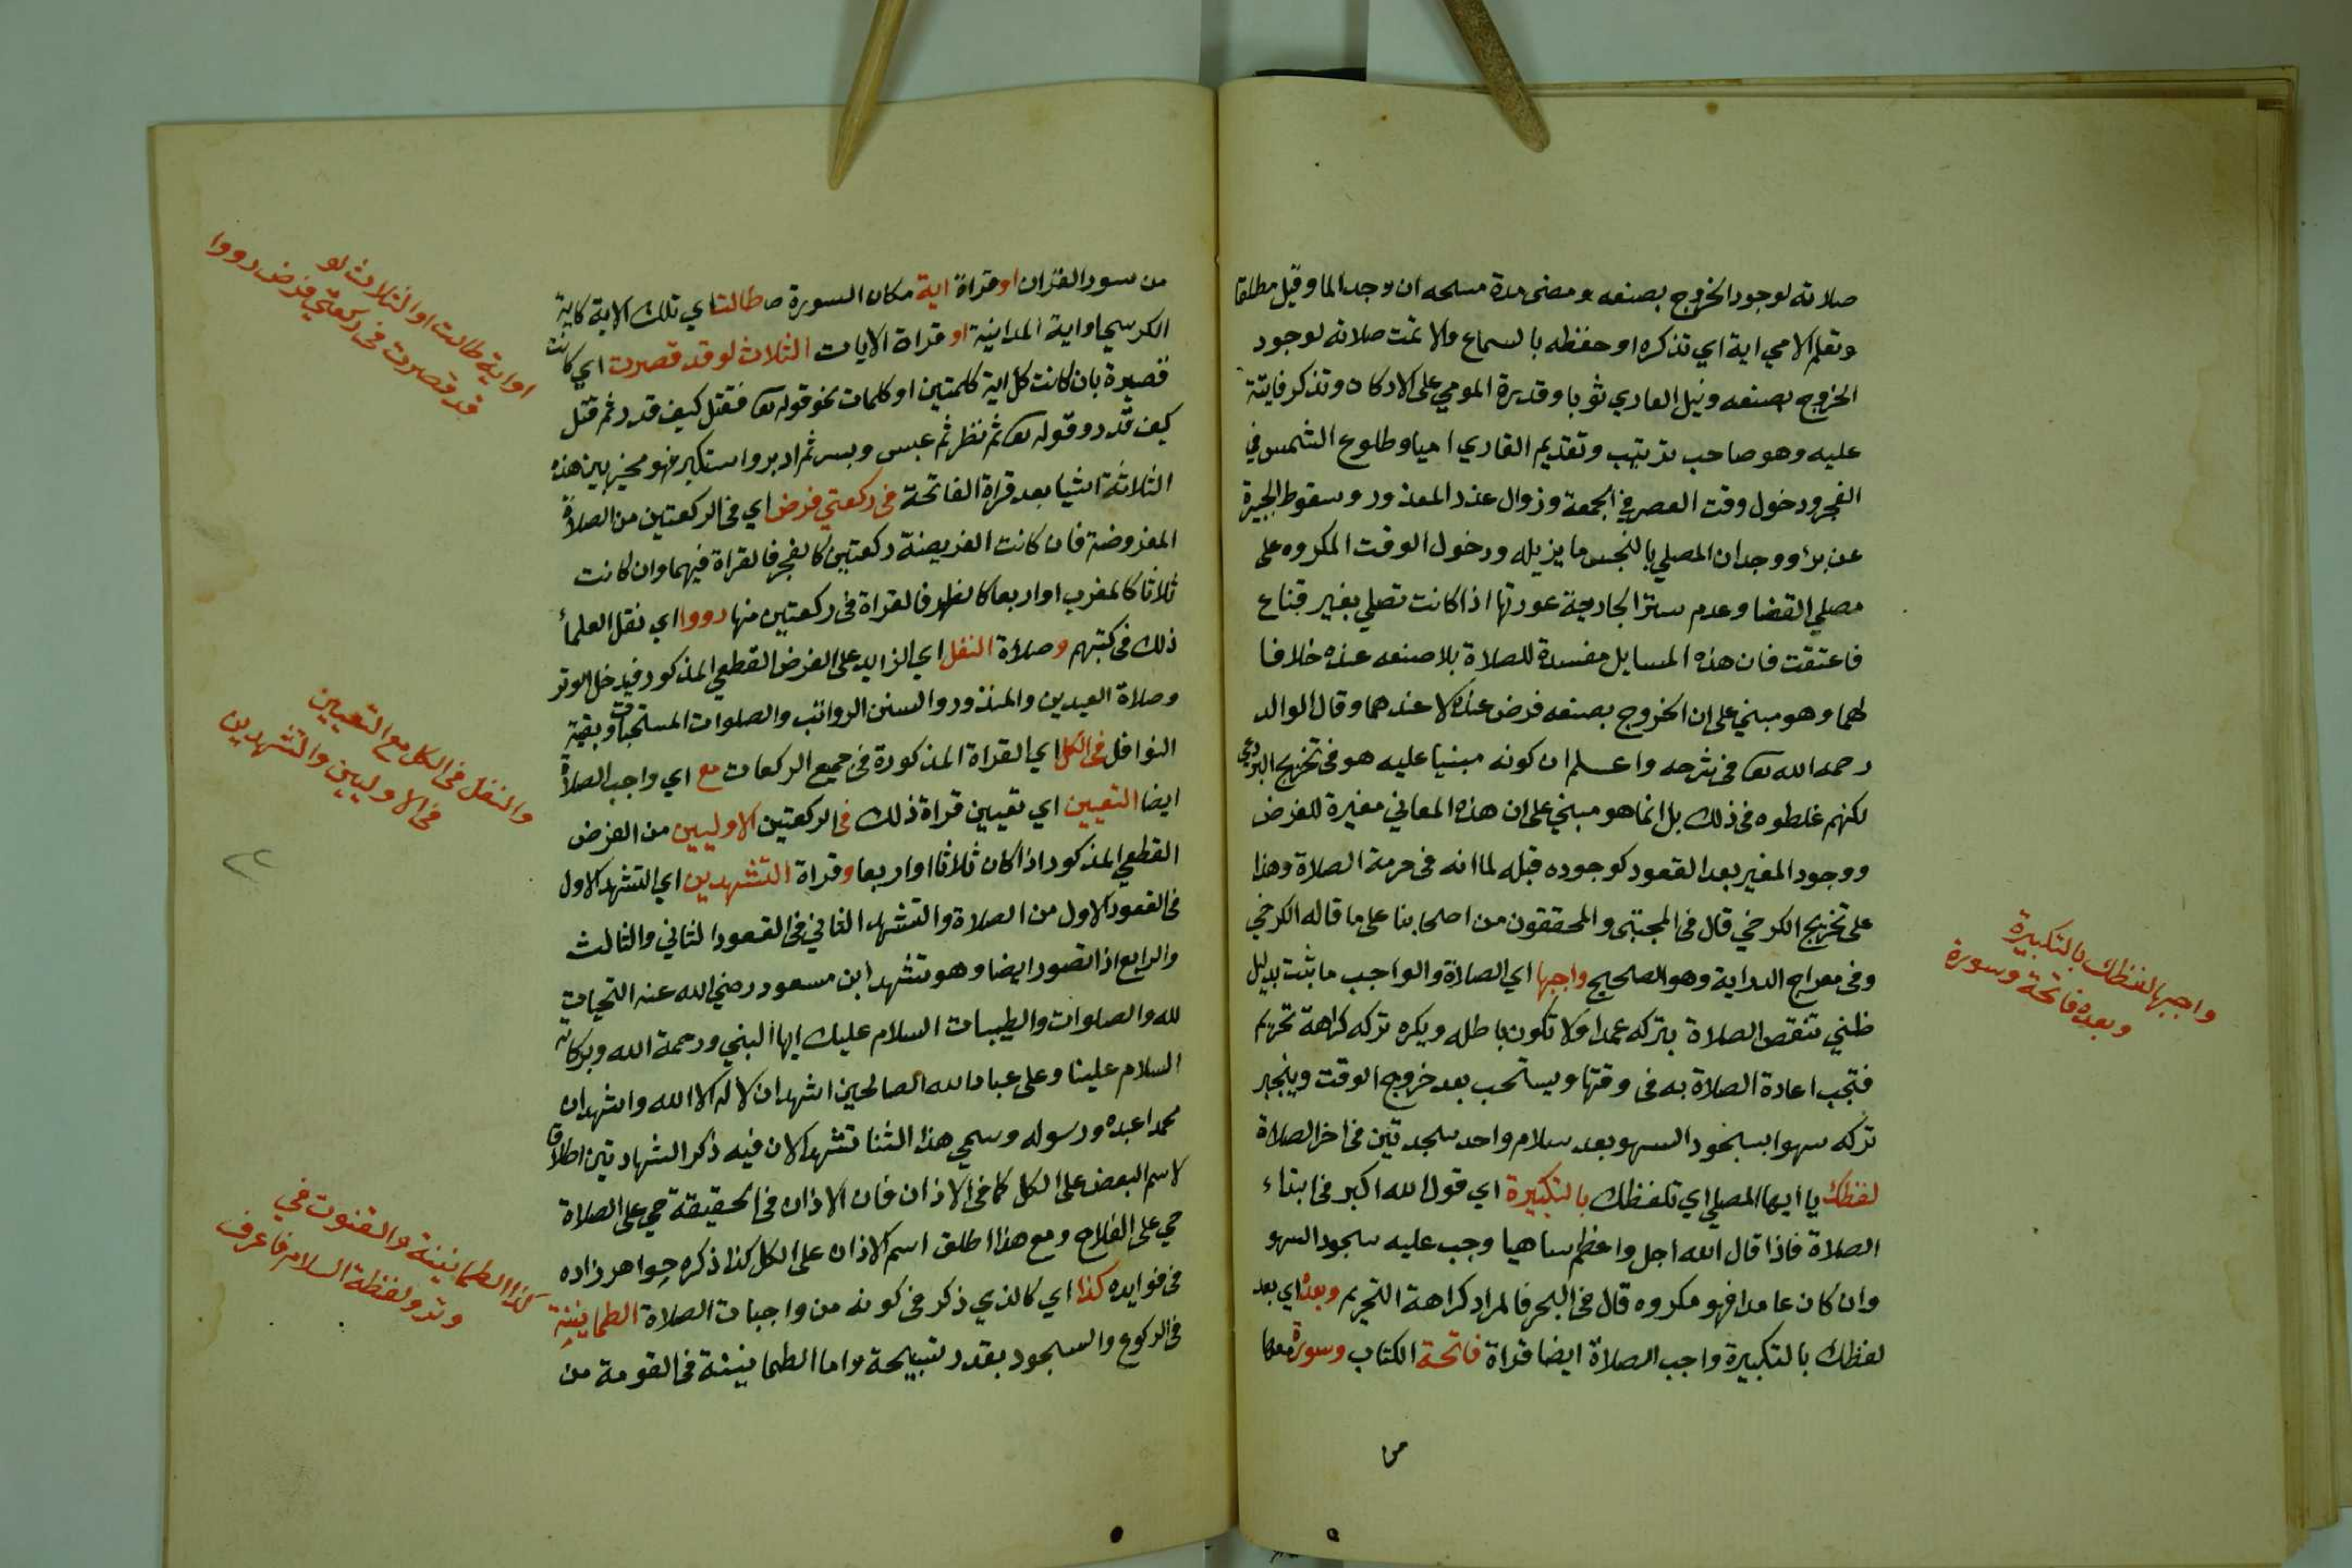 صلاته لوجود الخروج بصنعه ومضى مدة مسحه ان وجد الما وقيل مطلقا
وتعلم الامي اية اي تذكره او حفظه بالسماع والا تمت صلاته لوجود
الخروج بصنعه ونيل العاري ثوبا وقدرة المومي على الاركان وتذكر فايتة
عليه وهو صاحب ترتيب وتقديم القاري اميا وطلوع الشمس في
الفجر ودخول وقت العصر في الجمعة وزوال عذر المعذور وسقوط الجبيرة
عن برؤ ووجدان المصلي بالنجس ما يزيله ودخول الوقت المكروه على
مصلي القضا وعدم ستر الجارية عورتها اذا كانت تصلي بغير قناع
فاعتقت فان هذه المسايل مفسدة للصلاة بلا صنعه عنده خلافا
لهما وهو مبني على ان الخروج بصنعه فرض عنده لا عندهما وقال الوالد
رحمه الله تعا في شرحه واعلم ان كونه مبنيا عليه هو في تخريج البردعي
لكنهم غلطوه في ذلك بل انما هو مبني على ان هذه المعاني مغيرة للفرض
ووجود المغير بعد القعود كوجوده قبله لما انه في حرمة الصلاة وهذا
على تخريج الكرخي قال في المجتبى والمحققون من اصحابنا على ما قاله الكرخي
وفي معراج الدراية وهو الصحيح واجبها اي الصلاة والواجب ما ثبت بدليل
ظني تنقص الصلاة بتركه عمدا ولا تكون باطله ويكره تركه كراهة تحريم
فتجب اعادة الصلاة به في وقتها ويستحب بعد خروج الوقت وينجبر
تركه سهوا بسجود السهو بعد سلام واحد سجدتين في اخر الصلاة
لفظك يا ايها المصلي اي تلفظك بالتكبيرة اي قول الله اكبر في ابتداء
الصلاة فاذا قال الله اجل واعظم ساهيا وجب عليه سجود السهو
وان كان عامدا فهو مكروه قال في البحر فالمراد كراهة التحريم وبعده اي بعد
لفظك بالتكبيرة واجب الصلاة ايضا قراة فاتحة الكتاب وسورة معها
واجبها لفظك بالتكبيرة
وبعده فاتحة وسورة
من
من سور القران او قراة اية مكان السورة طالت اي تلك الاية كاية
الكرسي او اية المداينة او قراة الايات الثلاث لو قد قصرت اي كانت
قصيرة بان كانت كل اية كلمتين او كلمات نحو قوله تعا فقتل كيف قدر ثم قتل
كيف قدر وقوله تعا ثم نظر ثم عبس وبسر ثم ادبر واستكبر فهو مخير بين هذه
الثلاثة اشيا بعد قراة الفاتحة في ركعتي فرض اي في الركعتين من الصلاة
المفروضة فان كانت الفريضة ركعتين كالفجر فالقراة فيهما وان كانت
ثلاثا كالمغرب او اربعا كالظهر فالقراة في ركعتين منها رووا اي نقل العلماء
ذلك في كتبهم وصلاة النفل اي الزايد على الفرض القطعي المذكور فيدخل الوتر
وصلاة العيدين والمنذور والسنن الرواتب والصلوات المستحبات وبقية
النوافل في الكل اي القراة المذكورة في جميع الركعات مع اي واجب الصلاة
ايضا التعيين اي تعيين قراة ذلك في الركعتين الاوليين من الفرض
القطعي المذكور اذا كان ثلاثا او اربعا وقراة التشهدين اي التشهد الاول
في القعود الاول من الصلاة والتشهد الثاني في القعود الثاني والثالث
والرابع اذا تصور ايضا وهو تشهد ابن مسعود رضي الله عنه التحيات
لله والصلوات والطيبات السلام عليك ايها النبي ورحمة الله وبركاته
السلام علينا وعلى عباد الله الصالحين اشهد ان لا اله الا الله واشهد ان
محمدا عبده ورسوله وسمي هذا الثنا تشهدا لان فيه ذكر الشهادتين اطلاقا
لاسم البعض على الكل كما في الاذان فان الاذان في الحقيقة حي على الصلاة
حي على الفلاح ومع هذا اطلق اسم الاذان على الكل كذا ذكره جواهر زاده
في فوايده كذا اي كالذي ذكر في كونه من واجبات الصلاة الطمانينة
في الركوع والسجود بقدر تسبيحة واما الطمانينة في القومة من
او اية طالت او الثلاث لو
قد قصرت في ركعتي فرض رووا
والنفل في الكل مع التعيين
في الاوليين والتشهدين
كذا الطمانينة والقنوت في
وتر ولفظة السلام فاعرف